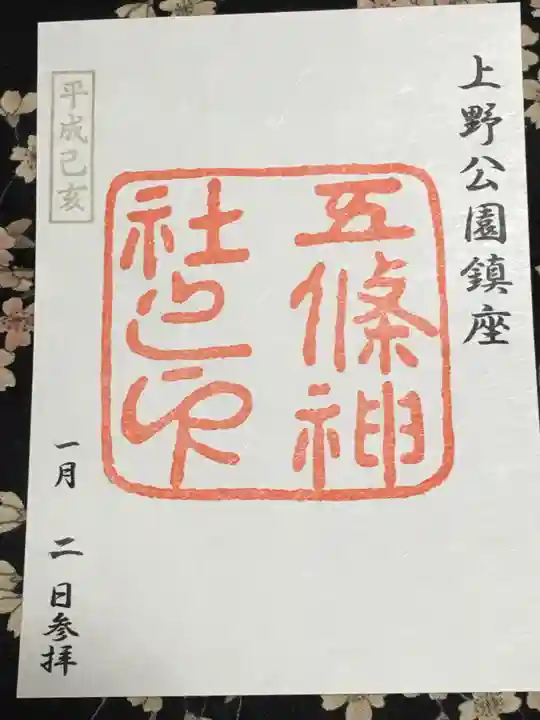 上野公園鎮座
五條神
社之印
平成己亥
一月 二日参拝